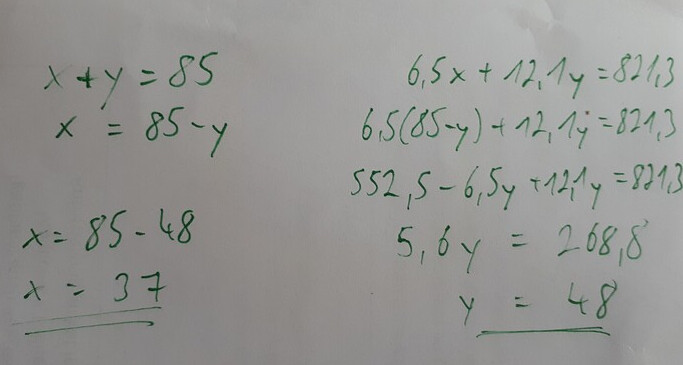 x + y = 85
x = 85 - y
x = 85 - 48
x = 37
6,5x + 12,1y = 821,3
6,5(85-y) + 12,1y = 821,3
552,5 - 6,5y + 12,1y = 821,3
5,6y = 268,8
y = 48